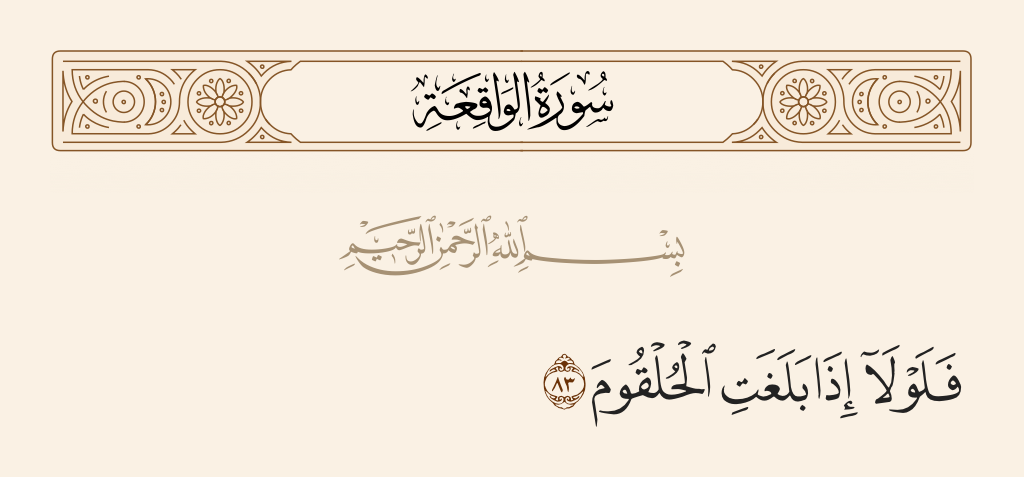 سُورَةُ الوَاقِعَةِ
بِسْمِ ٱللَّهِ ٱلرَّحْمَٰنِ ٱلرَّحِيمِ
فَلَوْلَآ إِذَا بَلَغَتِ ٱلْحُلْقُومَ ٨٣